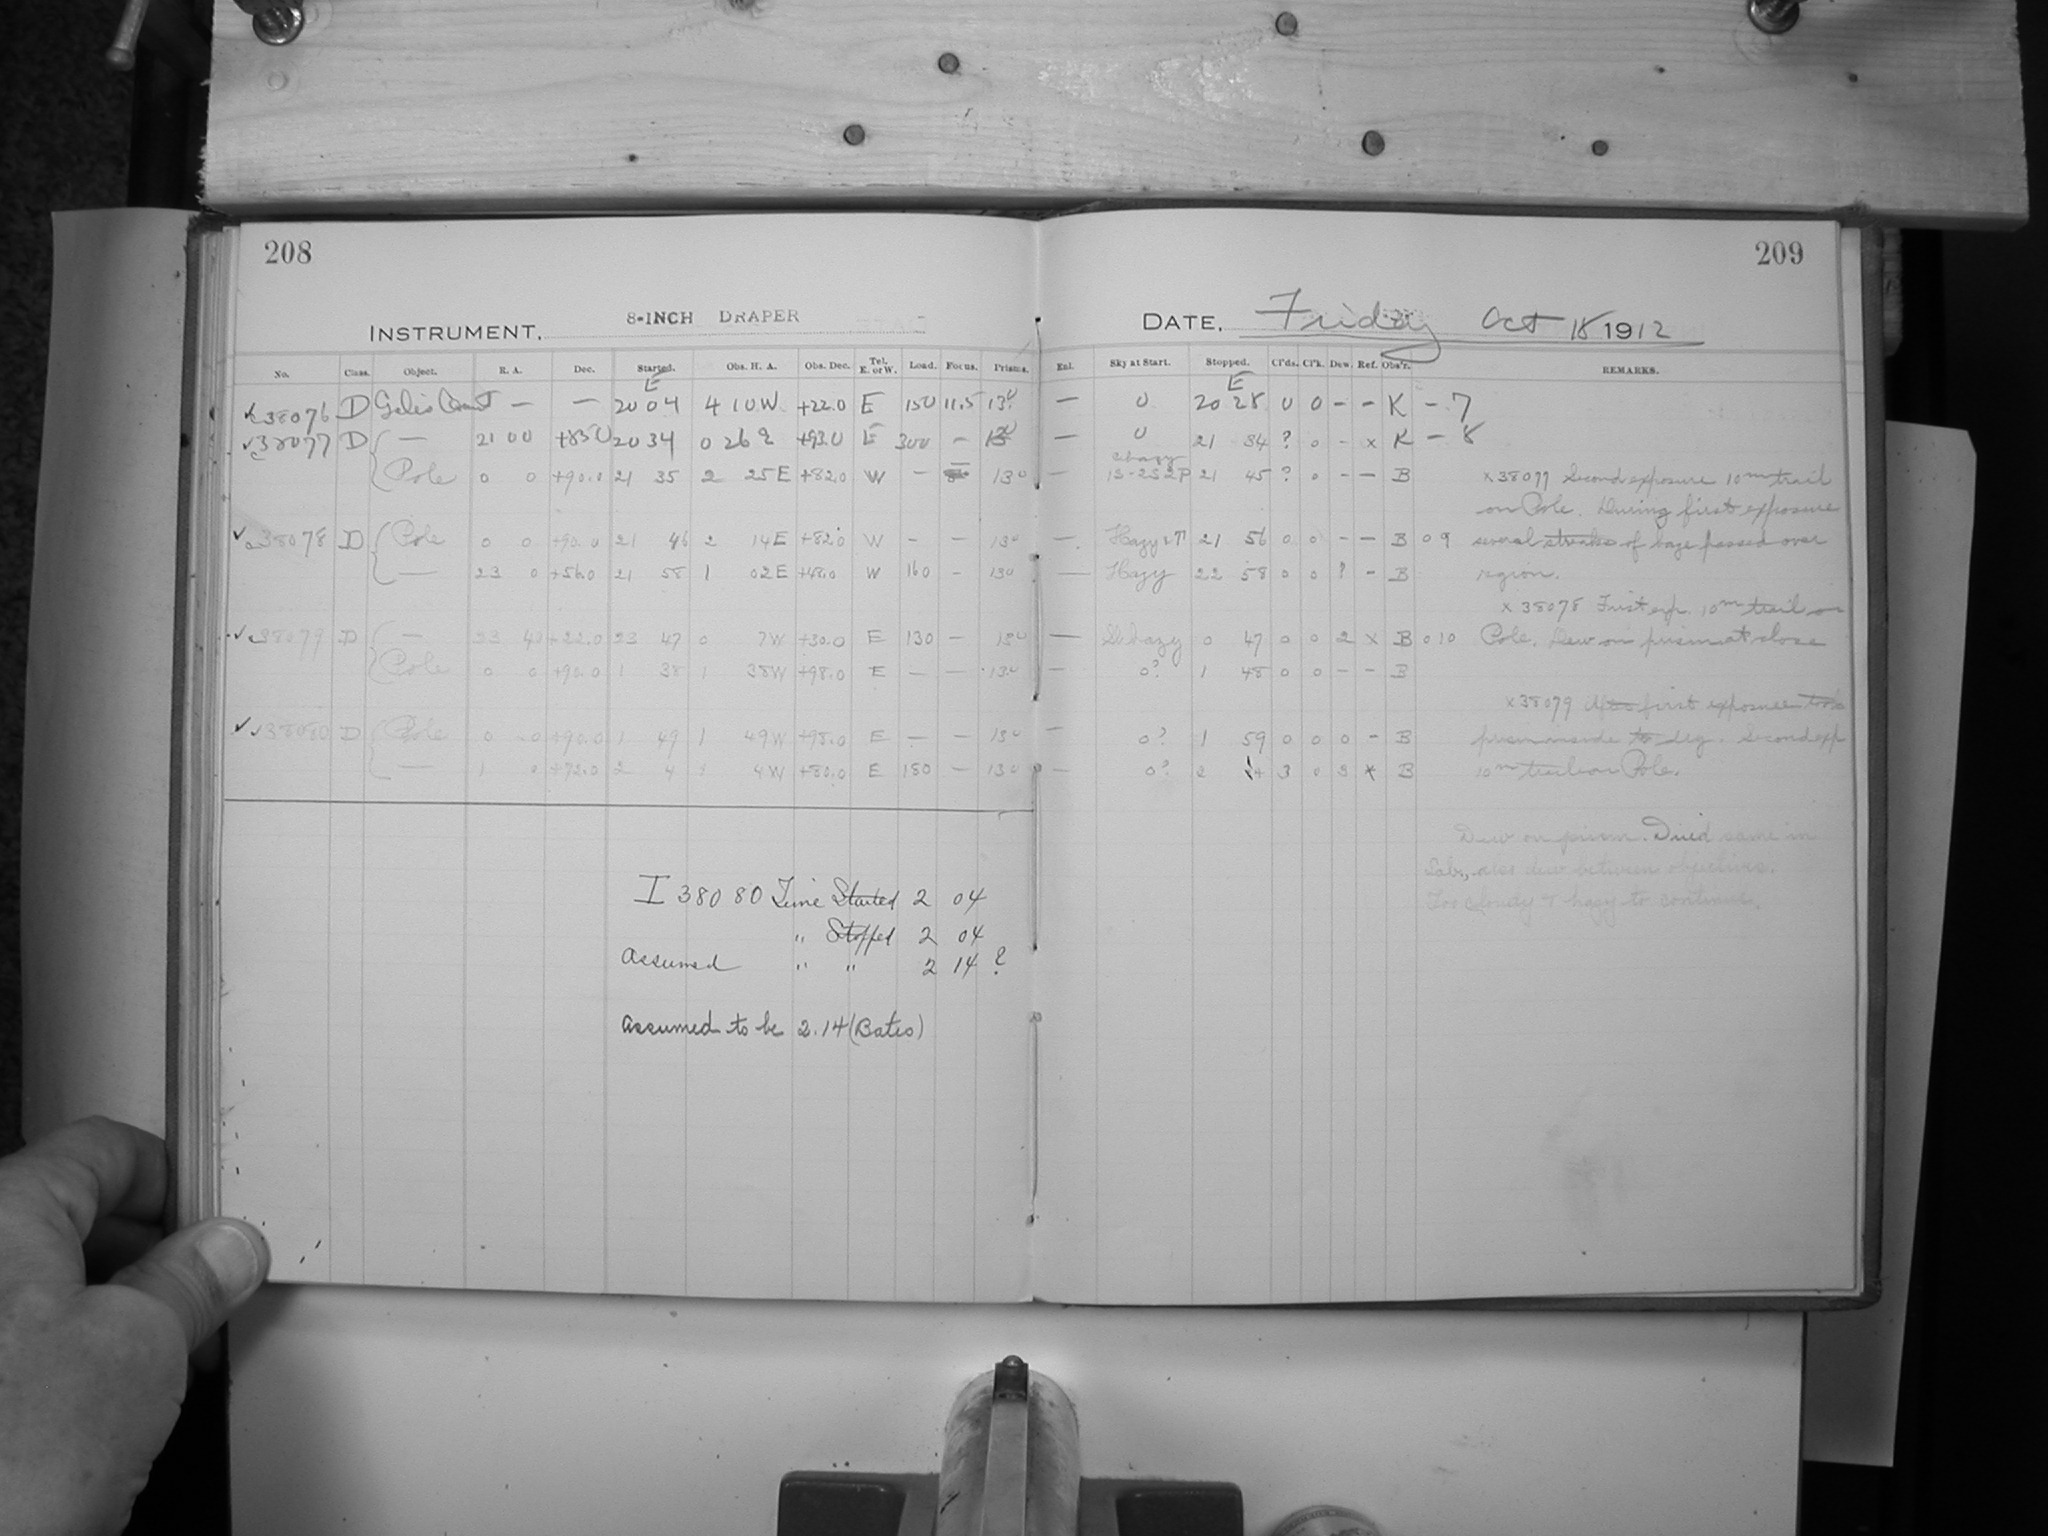 208
209
INSTRUMENT, 8-INCH DRAPER
DATE, Friday Oct 18 1912
No. Class. Object. R. A. Dec. Started. Obs. H. A. Obs. Dec. Tel. E. or W. Load. Focus. Prisms. Enl. Sky at Start. Stopped. Cl'ds. Cl'k. Dew. Ref. Obs'r. REMARKS.
E E
38076 D — — 20 04 4 10W +22.0 E 150 11.5 13 — 0 20 28 0 0 - - K - 7
38077 D — 21 00 +85.0 20 34 0 26 +93.0 E 300 — — 0 21 34 ? 0 - x K - 8
Pole 0 0 +90.0 21 35 2 25E +82.0 W — 13 — 21 45 ? 0 - - B
x 38077 Second exposure 10m trail
on Pole. During first exposure
38078 D Pole 0 0 +90.0 21 46 2 14E +82.0 W - - 13 — Hazy 21 56 0 0 - - B 0 9 several streaks of haze passed over
— 23 0 +56.0 21 58 1 02E +48.0 W 160 - 13 — Hazy 22 58 0 0 ? - B region.
x 38078 First exp. 10m trail on
38079 D — 23 40 +22.0 23 47 0 7W +30.0 E 130 — 13 — hazy 0 47 0 0 2 x B 0 10 Pole. Dew on prism at close
Pole 0 0 +90.0 1 38 1 38W +98.0 E — — 13 0? 1 48 0 0 - - B
x 38079 first exposure took
38080 D Pole 0 0 +90.0 1 49 1 49W +98.0 E — — 13 — 0? 1 59 0 0 0 - B prism inside to dry. Second exp
— 1 0 +72.0 2 4 1 4W +80.0 E 180 — 13 — 0? 2 14 3 0 3 x B 10m trail on Pole.
Dew on prism. Dried same in
Lab., also dew between objectives.
Too cloudy + hazy to continue.
I 38080 Time Started 2 04
" Stopped 2 04
Assumed " " 2 14 ?
Assumed to be 2.14 (Bates)